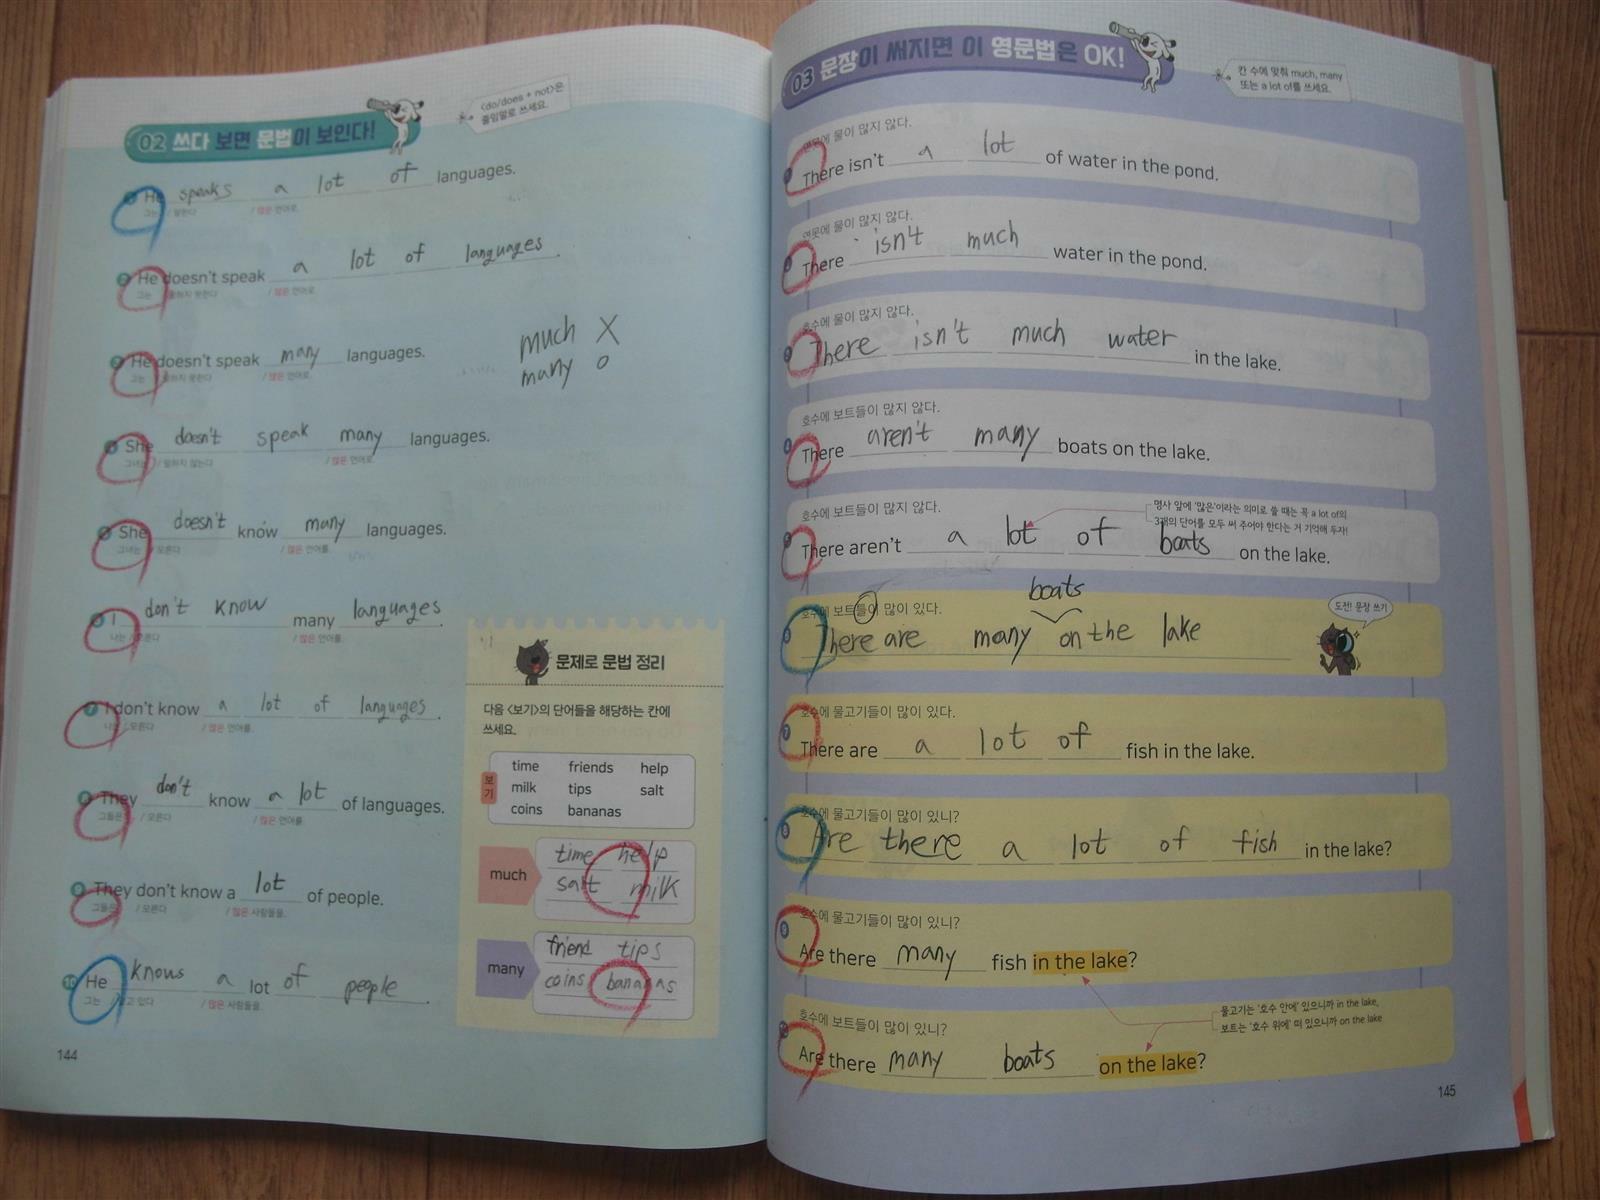 02 쓰다 보면 문법이 보인다!
<do/does + not>은
줄임말로 쓰세요.
1 He speaks a lot of languages.
그는 / 말한다 / 많은 언어로.
2 He doesn't speak a lot of languages.
그는 / 말하지 못한다 / 많은 언어로.
3 He doesn't speak many languages.
그는 / 말하지 못한다 / 많은 언어로.
much X
many o
4 She doesn't speak many languages.
그녀는 / 말하지 않는다 / 많은 언어로.
5 She doesn't know many languages.
그녀는 / 모른다 / 많은 언어를.
6 I don't know many languages.
나는 / 모른다 / 많은 언어를.
7 I don't know a lot of languages.
나는 / 모른다 / 많은 언어를.
8 They don't know a lot of languages.
그들은 / 모른다 / 많은 언어를.
9 They don't know a lot of people.
그들은 / 모른다 / 많은 사람들을.
10 He knows a lot of people.
그는 / 알고 있다 / 많은 사람들을.
문제로 문법 정리
다음 <보기>의 단어들을 해당하는 칸에
쓰세요.
보기
time friends help
milk tips salt
coins bananas
much
time help
salt milk
many
friend tips
coins bananas
144
03 문장이 써지면 이 영문법은 OK!
칸 수에 맞춰 much, many
또는 a lot of를 쓰세요.
연못에 물이 많지 않다.
1 There isn't a lot of water in the pond.
연못에 물이 많지 않다.
2 There isn't much water in the pond.
호수에 물이 많지 않다.
3 There isn't much water in the lake.
호수에 보트들이 많지 않다.
4 There aren't many boats on the lake.
호수에 보트들이 많지 않다.
명사 앞에 '많은'이라는 의미로 쓸 때는 꼭 a lot of의
3개의 단어를 모두 써 주어야 한다는 거 기억해 두자!
5 There aren't a lot of boats on the lake.
호수에 보트들이 많이 있다.
boats
6 There are many on the lake
도전! 문장 쓰기
호수에 물고기들이 많이 있다.
7 There are a lot of fish in the lake.
호수에 물고기들이 많이 있니?
8 Are there a lot of fish in the lake?
호수에 물고기들이 많이 있니?
9 Are there many fish in the lake?
물고기는 '호수 안에' 있으니까 in the lake,
보트는 '호수 위에' 떠 있으니까 on the lake
호수에 보트들이 많이 있니?
Are there many boats on the lake?
145